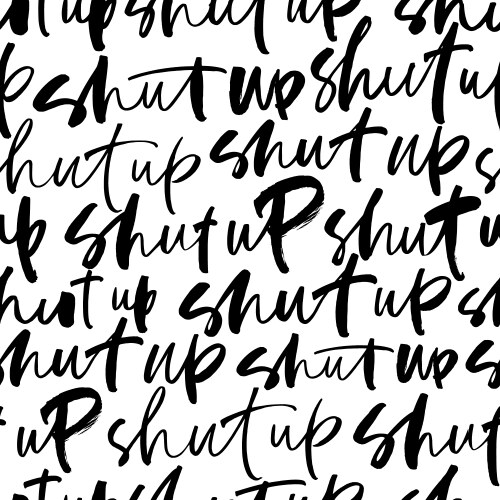 shut up shut up shu
p shut up shut u
shut up shut up s
up shut uP shut u
hut up shut up s
shut up shut up s
t uP shut up shut
t up shut up shut up